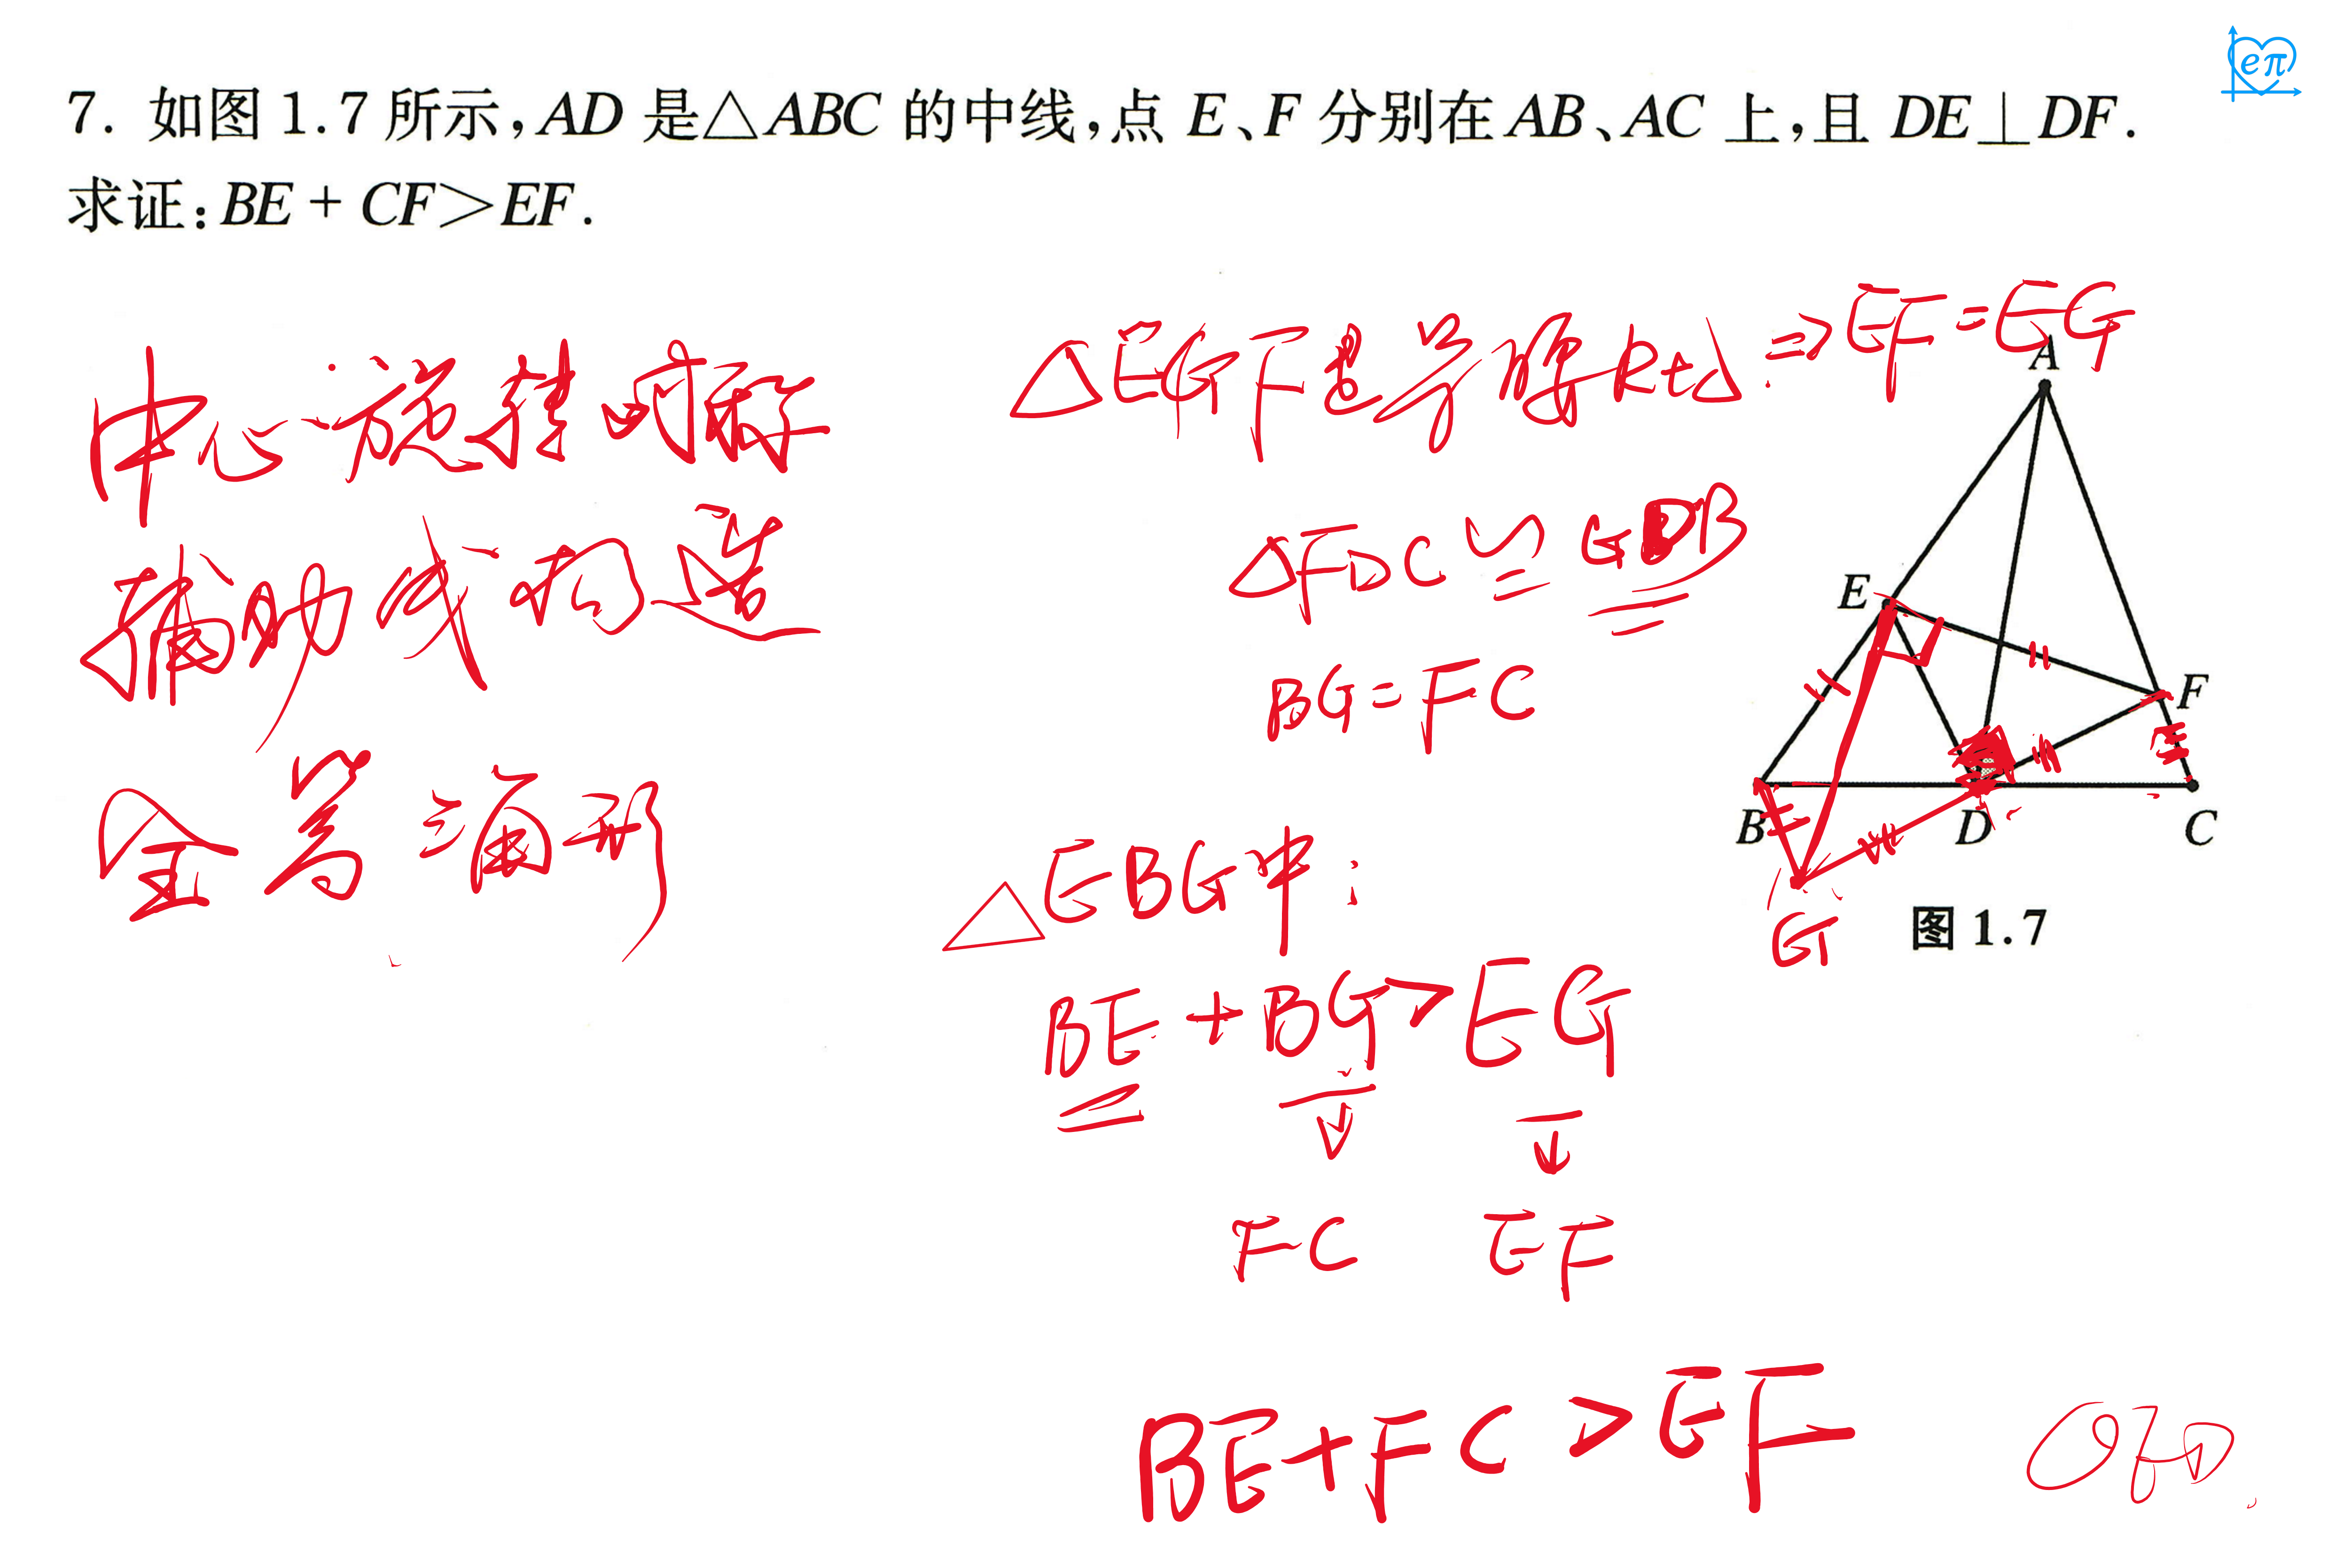 eπ
7. 如图 1.7 所示,AD 是△ABC 的中线,点 E、F 分别在 AB、AC 上,且 DE⊥DF.
求证:BE + CF>EF.
中心旋转对称
辅助线构造
全等三角形
△EGF是等腰Rt△ ⇒ EF=EG
△FDC≌GDB
BG=FC
△EBG中:
BE+BG>EG
FC EF
BE+FC>EF
A
E
F
B
D
C
G
图 1.7